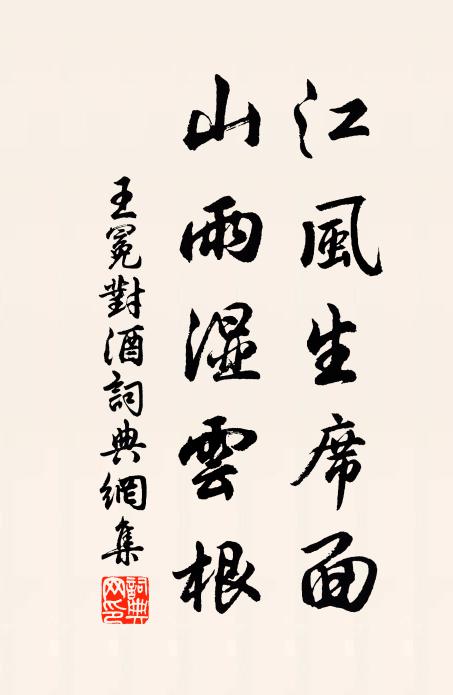 江風生席面
山雨湿雲根
王冕對酒詞典網集
詞典網印